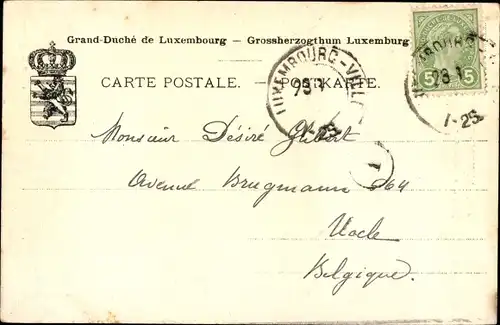 Grand-Duché de Luxembourg – Grossherzogthum Luxemburg
CARTE POSTALE. – POSTKARTE.
LUXEMBOURG-VILLE
1-2S
5 5
1-2S
1
Monsieur Désiré
Avenue Brugmann 264
Uccle
Belgique.